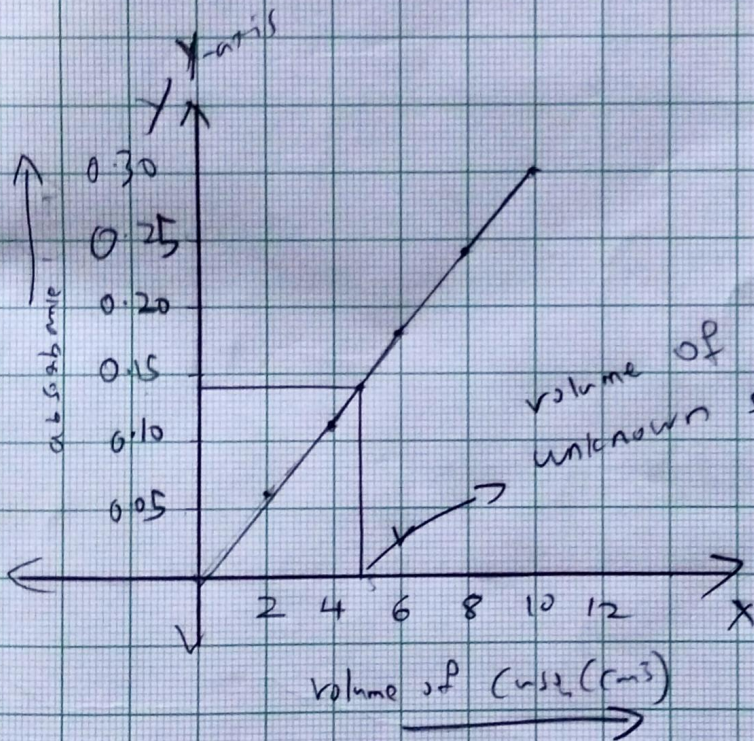 Y-axis
Y
0.30
0.25
0.20
0.15
0.10
0.05
absorbance
volume of
unknown
2 4 6 8 10 12
X
volume of (cm3)